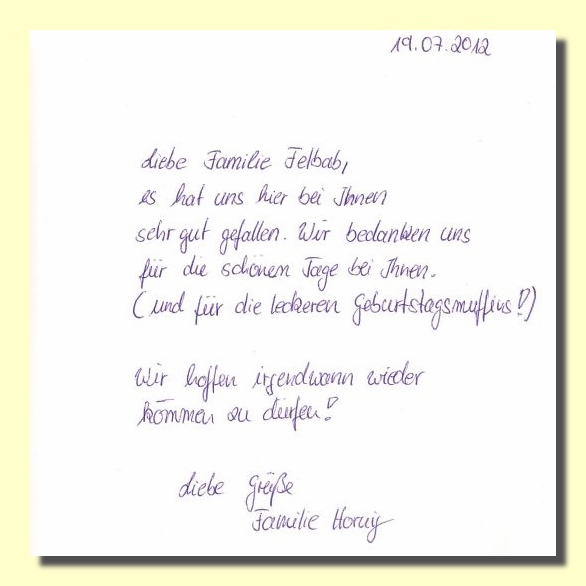 19.07.2012
Liebe Familie Felbab,
es hat uns hier bei Ihnen
sehr gut gefallen. Wir bedanken uns
für die schönen Tage bei Ihnen.
(und für die leckeren Geburtstagsmuffins!)
Wir hoffen irgendwann wieder
kommen zu dürfen!
Liebe Grüße
Familie Hornig